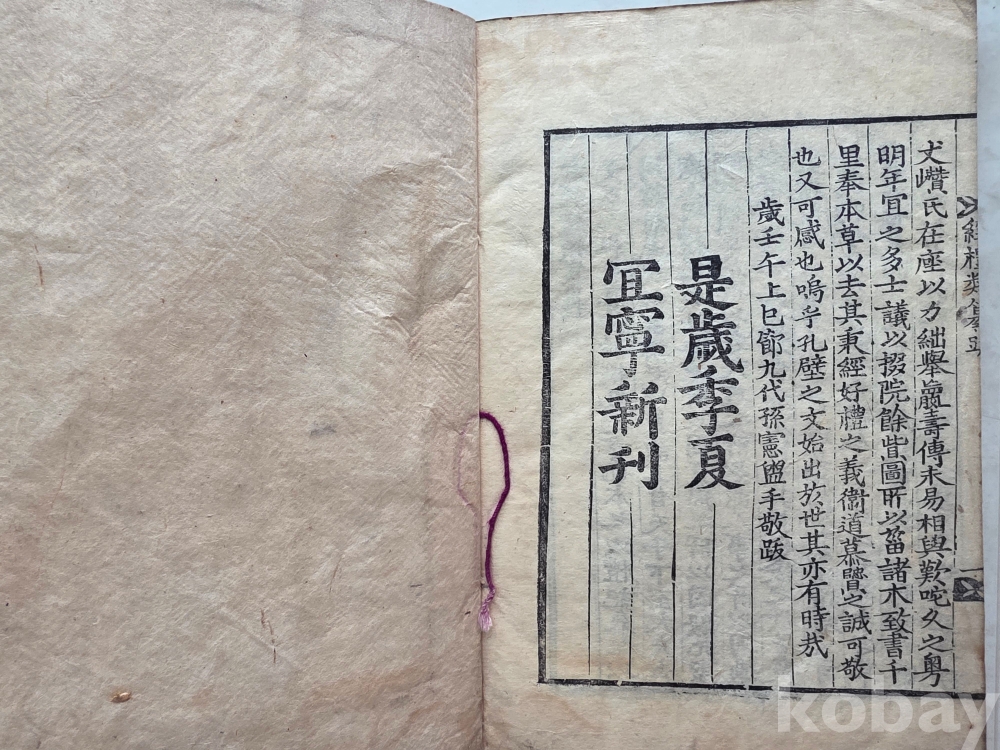 經禮類纂五
犬巑氏在座以力絀舉嬴壽傳未易相與歎咜久之粤
明年冝之多士議以掇院餘呰圖所以葘諸木致書千
里奉本草以去其秉經好禮之義衞道慕贒之誠可敬
也又可感也嗚乎孔壁之文始出於世其亦有時㦲
歲壬午上巳節九代孫憲盥手敬跋
是歲季夏
冝寧新刊
kobay